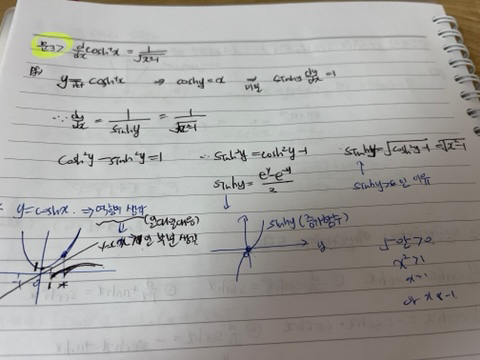 문3> d/dx cosh⁻¹x = 1/√x²-1
y = cosh⁻¹x ⇒ coshy = x ⇒ 미분 sinhy dy/dx = 1
∴ dy/dx = 1/sinhy = 1/√x²-1
cosh²y - sinh²y = 1 ∴ sinh²y = cosh²y - 1 sinhy = √cosh²y-1 = √x²-1
sinhy = (e^y - e^-y)/2
y = coshx. ⇒
(일대일대응)
sinhy (증가함수)
y
x² > 1
or x < -1